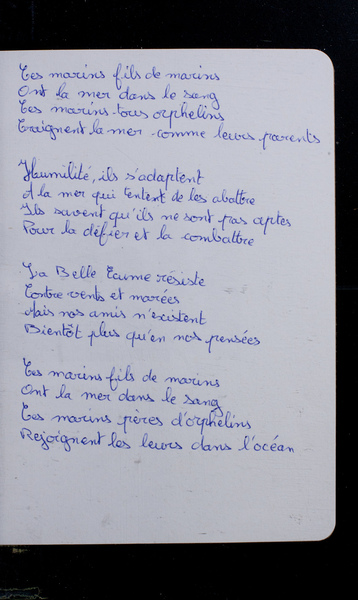 Ces marins fils de marins
Ont la mer dans le sang
Ces marins tous orphelins
Craignent la mer comme leurs parents
Humilité, ils s'adaptent
A la mer qui tentent de les abattre
Ils savent qu'ils ne sont pas aptes
Pour la défier et la combattre
La Belle Ecume résiste
Contre vents et marées
Mais nos amis n'existent
Bientôt plus qu'en nos pensées
Ces marins fils de marins
Ont la mer dans le sang
Ces marins pères d'orphelins
Rejoignent les leurs dans l'océan